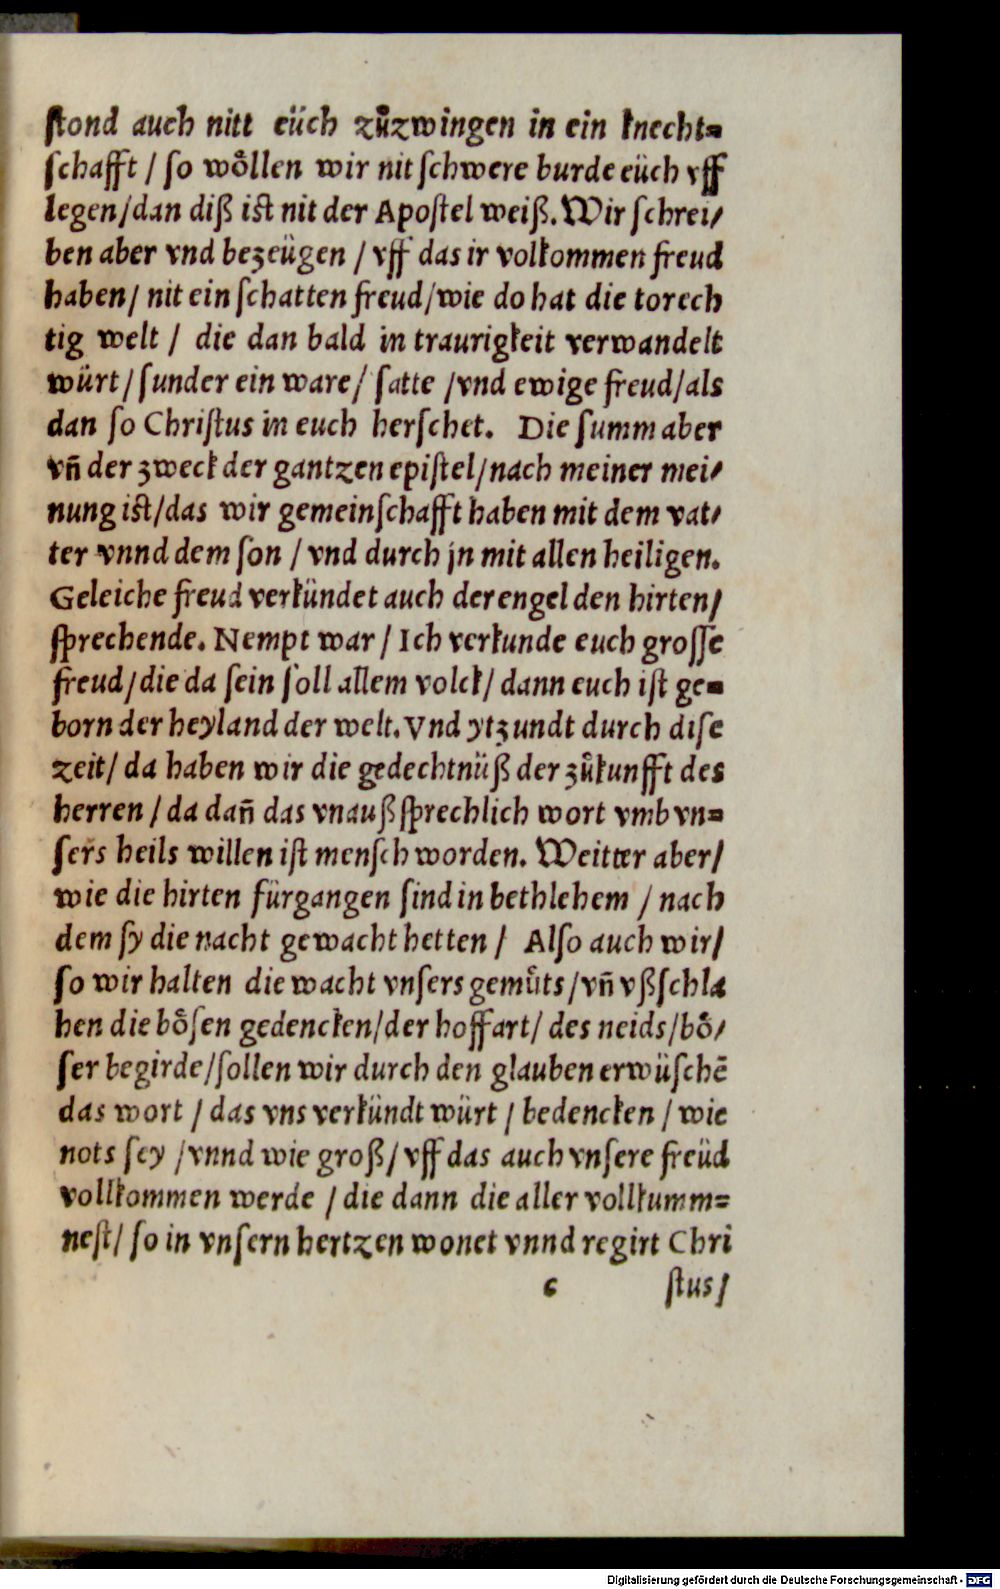 ſtond auch nitt eüch zůzwingen in ein knecht⸗
ſchafft / ſo wöllen wir nit ſchwere burde eüch vff
legen/dan diß iſt nit der Apoſtel weiß. Wir ſchrei/
ben aber vnd bezeügen / vff das ir volkommen freud
haben/ nit ein ſchatten freud/wie do hat die torech
tig welt / die dan bald in traurigkeit verwandelt
würt/ſunder ein ware/ ſatte /vnd ewige freud/als
dan ſo Chriſtus in euch herſchet. Die ſumm aber
vñ der zweck der gantzen epiſtel/nach meiner mei/
nung iſt/das wir gemeinſchafft haben mit dem vat/
ter vnnd dem ſon / vnd durch jn mit allen heiligen.
Geleiche freud verkündet auch der engel den hirten/
ſprechende. Nempt war / Ich verkunde euch groſſe
freud/die da ſein ſoll allem volck/ dann euch iſt ge⸗
born der heyland der welt. Vnd ytzundt durch diſe
zeit/ da haben wir die gedechtnüß der zůkunfft des
herren / da dañ das vnaußſprechlich wort vmb vn⸗
ſers heils willen iſt menſch worden. Weitter aber/
wie die hirten fürgangen ſind in bethlehem / nach
dem ſy die nacht gewacht hetten / Alſo auch wir/
ſo wir halten die wacht vnſers gemůts/vñ vßſchla
hen die böſen gedencken/der hoffart/ des neids/bö/
ſer begirde/ſollen wir durch den glauben erwüſchē
das wort / das vns verkündt würt / bedencken / wie
nots ſey /vnnd wie groß/ vff das auch vnſere freüd
vollkommen werde / die dann die aller vollkumm⸗
neſt/ ſo in vnſern hertzen wonet vnnd regirt Chri
c ſtus/
Digitalisierung gefördert durch die Deutsche Forschungsgemeinschaft - DFG